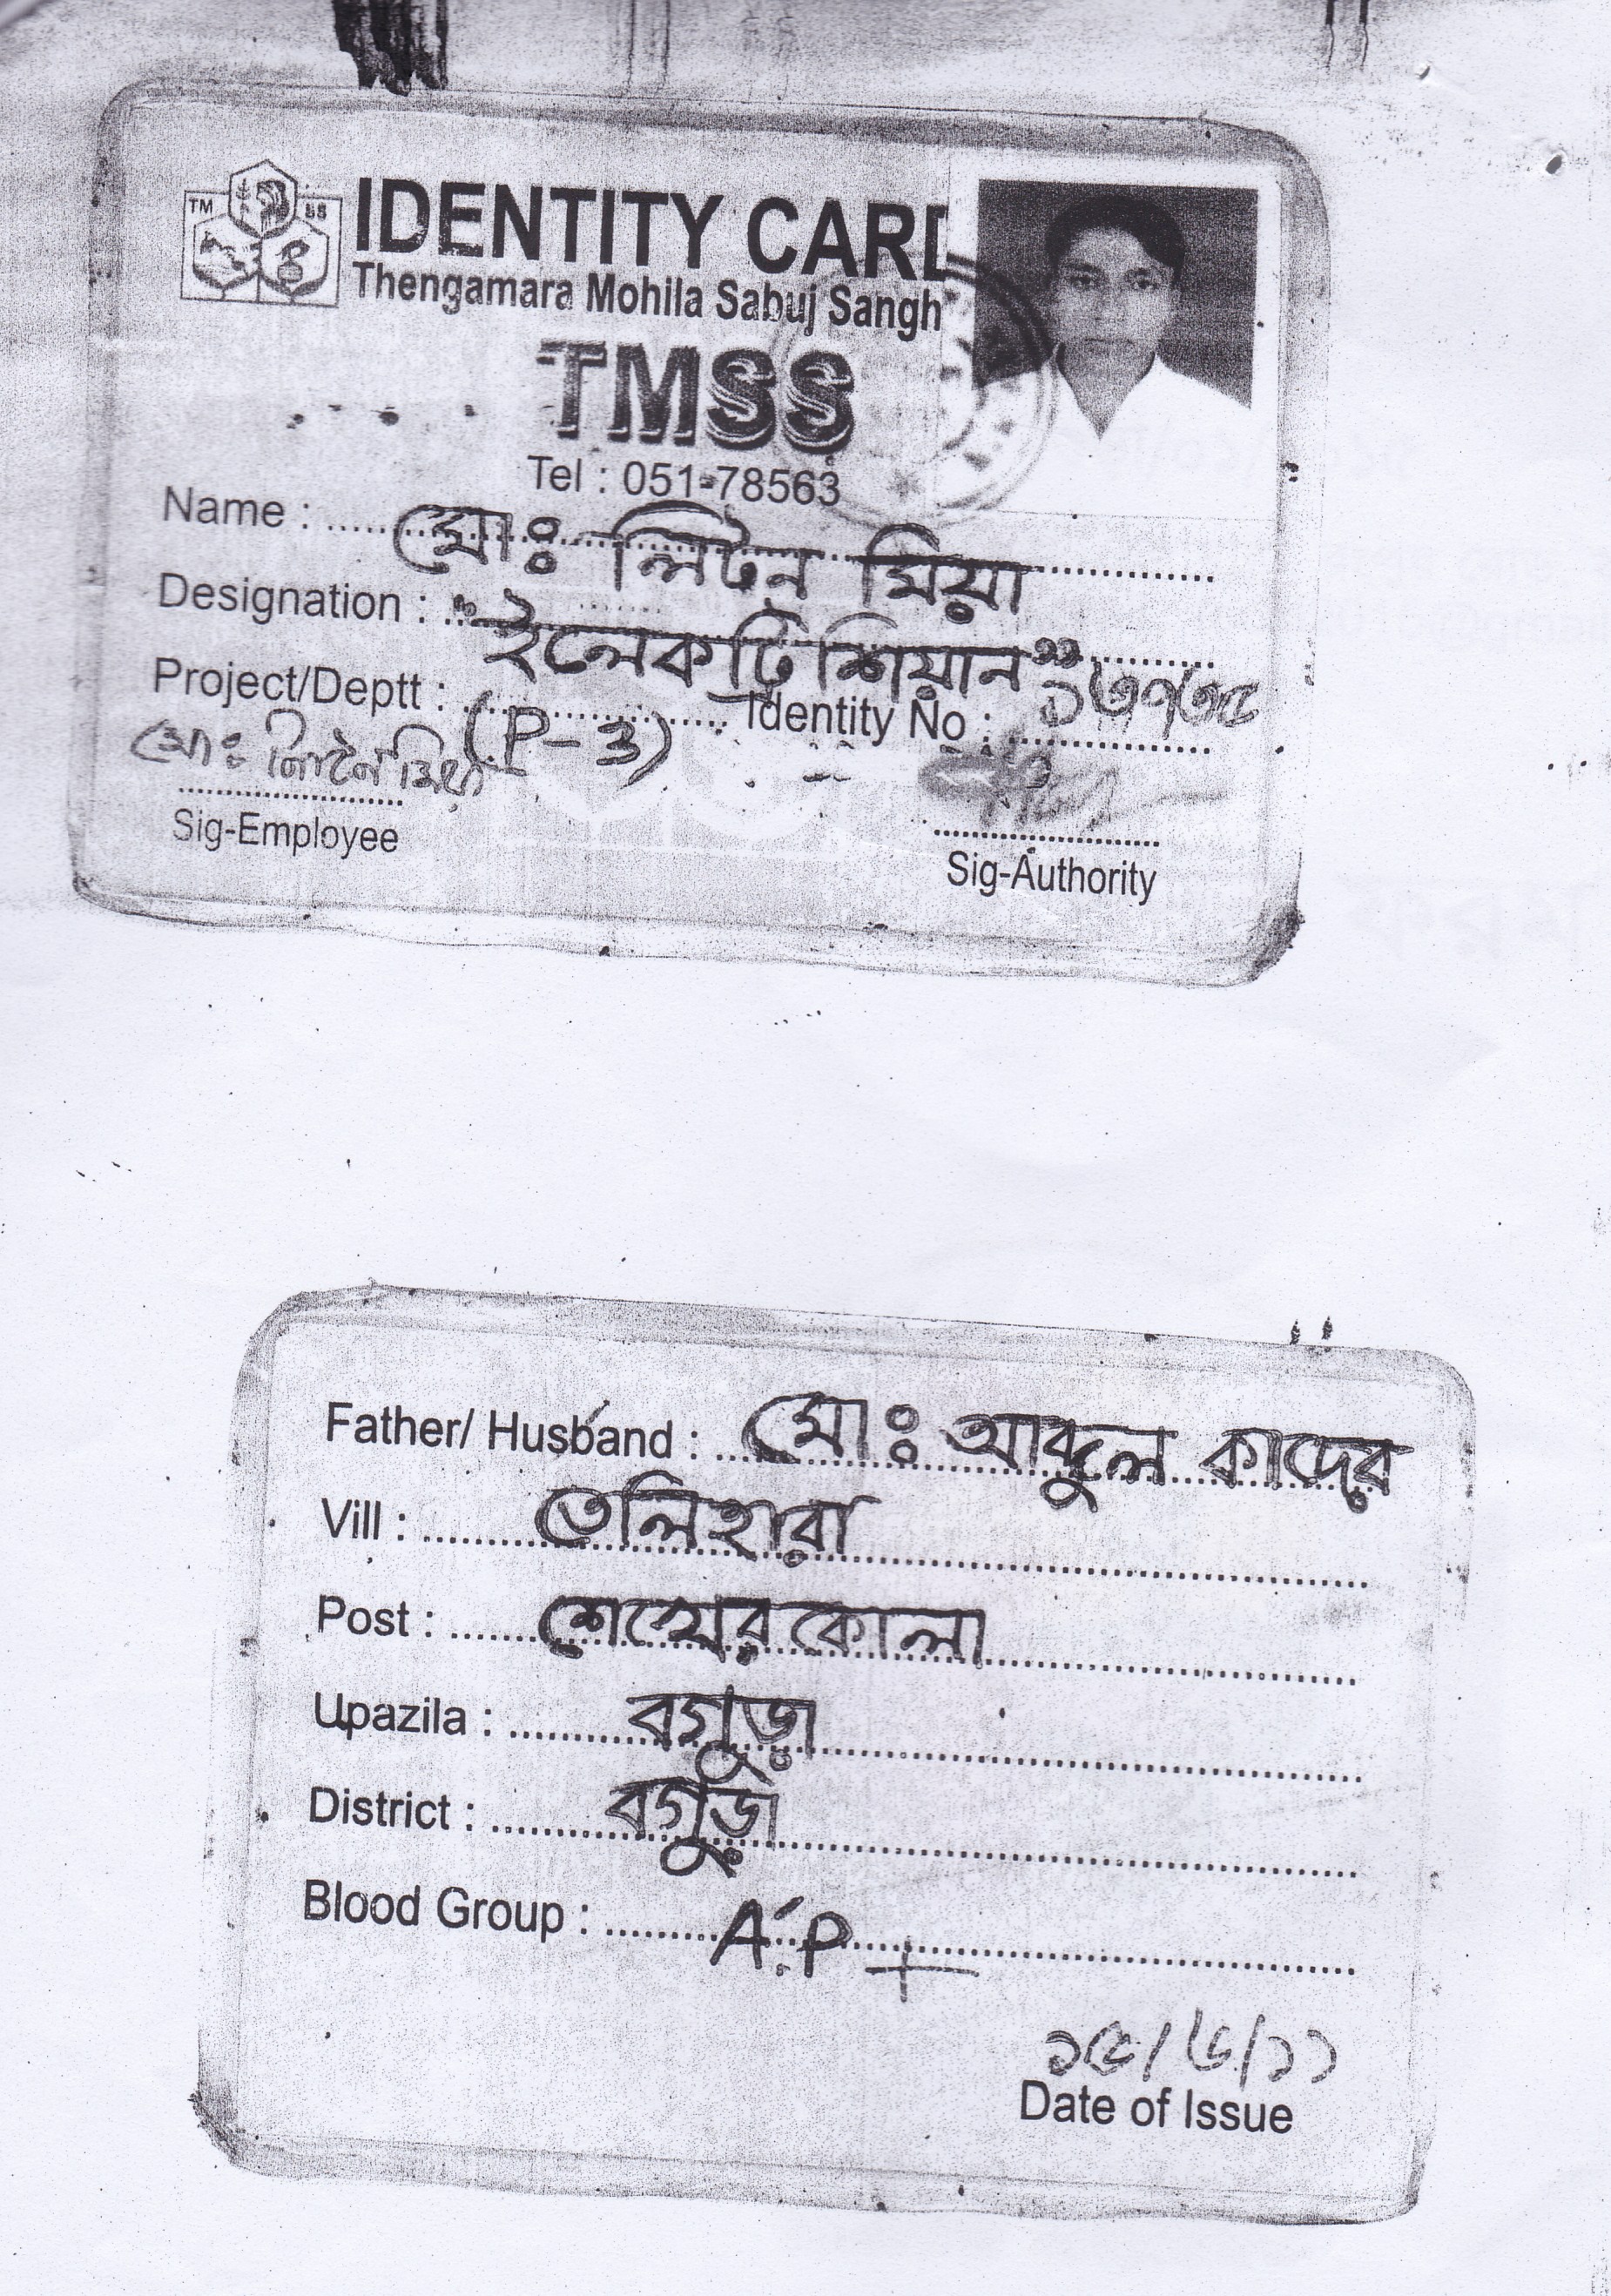 TM SS
IDENTITY CARD
Thengamara Mohila Sabuj Sangh
TMSS
Tel : 051-78563
Name : মোঃ লিটন মিয়া
Designation : "ইলেকট্রিশিয়ান"
Project/Deptt : (P-3) Identity No :
মোঃ লিটন মিয়া
Sig-Employee
Sig-Authority
Father/ Husband : মোঃ আব্দুল কাদের
Vill : তেলিহারা
Post : শেখেরকোলা
Upazila : বগুড়া
District : বগুড়া
Blood Group : A.P +
১৫/৬/১১
Date of Issue